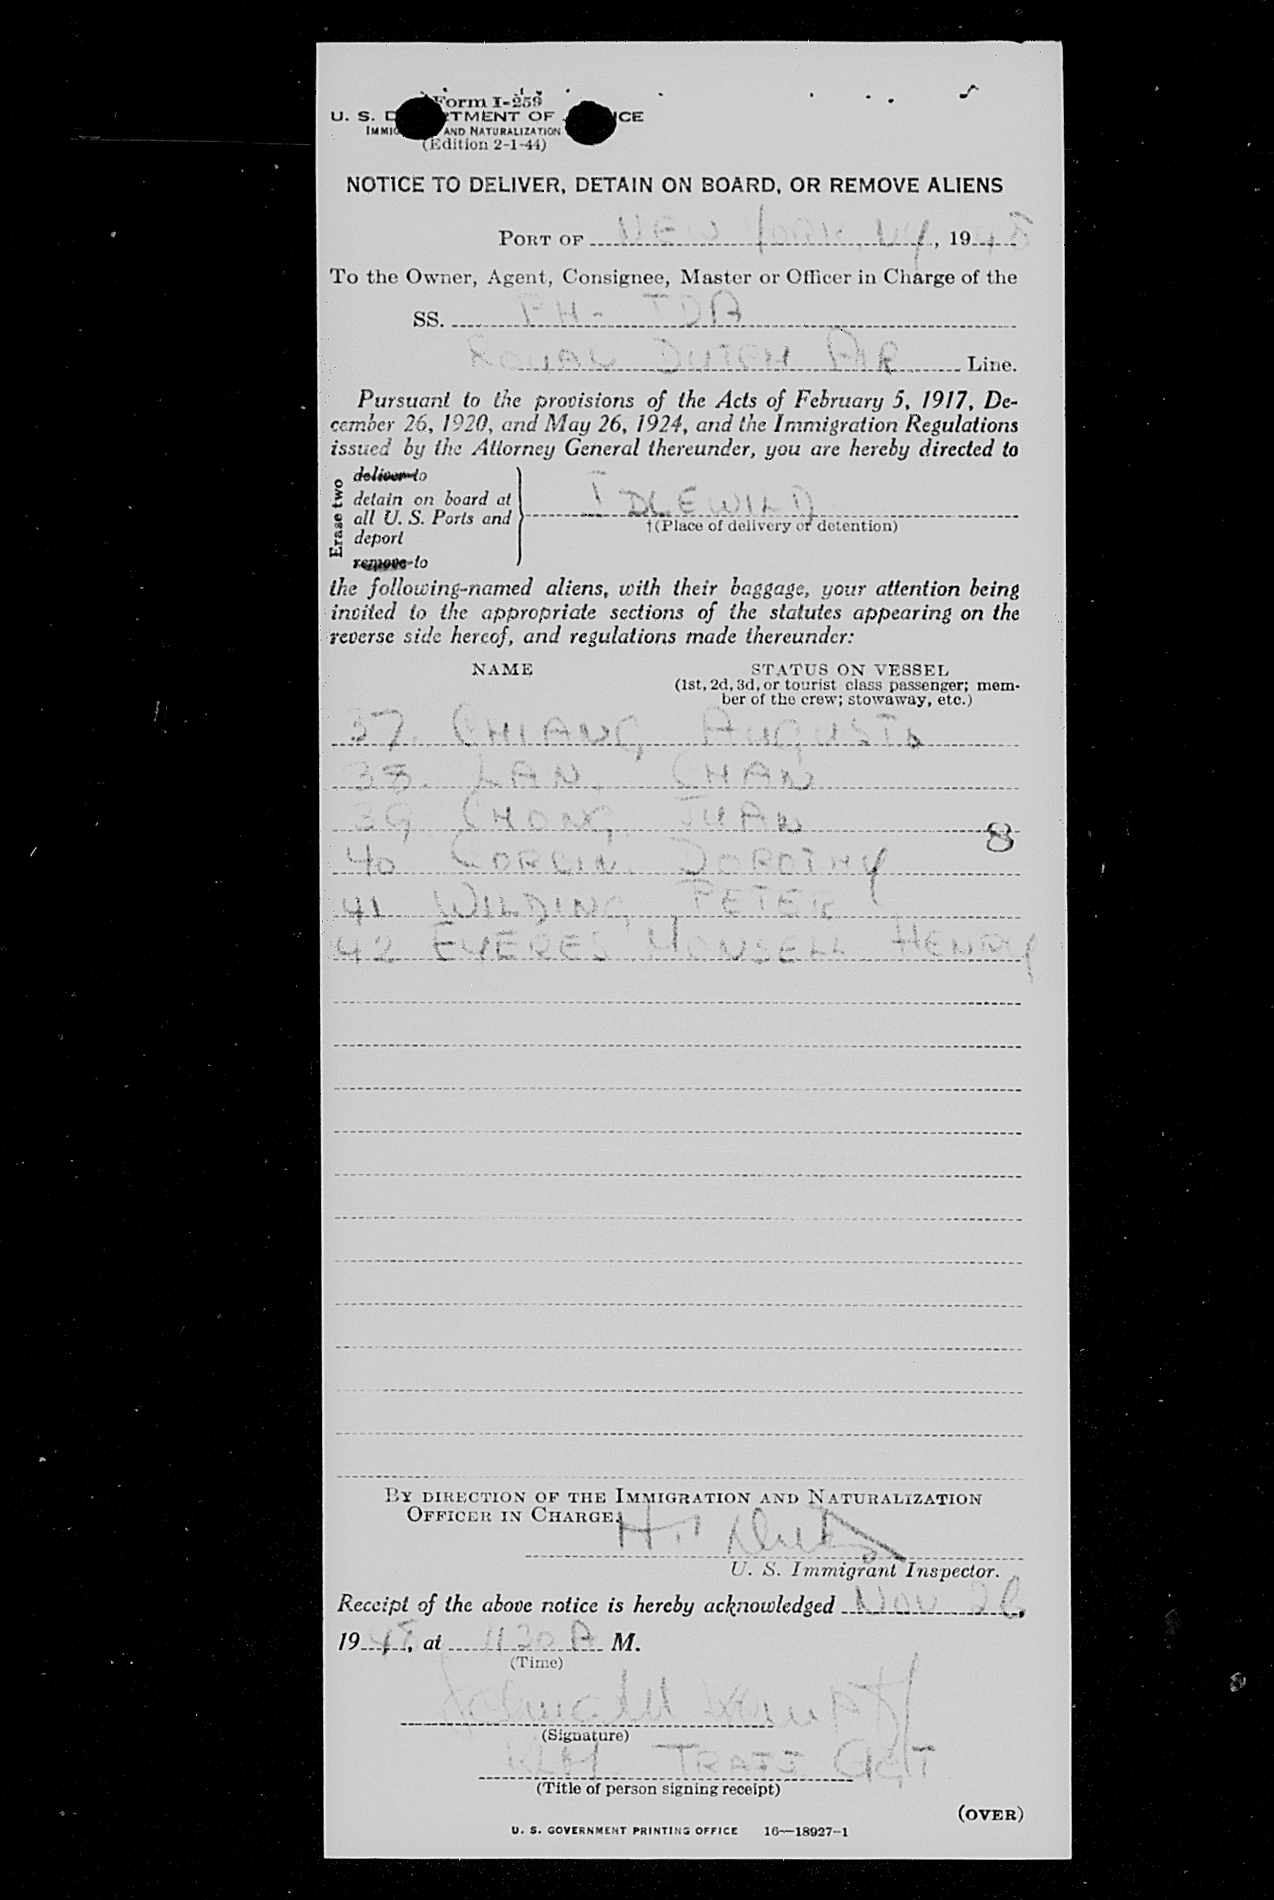 Form I-259
U. S. D TMENT OF CE
IMMIG AND NATURALIZATION
(Edition 2-1-44)
NOTICE TO DELIVER, DETAIN ON BOARD, OR REMOVE ALIENS
PORT OF NEW YORK, NY, 1948
To the Owner, Agent, Consignee, Master or Officer in Charge of the
SS. PH- TDA
ROYAL DUTCH AIR Line.
Pursuant to the provisions of the Acts of February 5, 1917, De-
cember 26, 1920, and May 26, 1924, and the Immigration Regulations
issued by the Attorney General thereunder, you are hereby directed to
Erase two
deliver to
detain on board at
all U. S. Ports and
deport
remove to
IDLEWILD
†(Place of delivery or detention)
the following-named aliens, with their baggage, your attention being
invited to the appropriate sections of the statutes appearing on the
reverse side hereof, and regulations made thereunder:
NAME STATUS ON VESSEL
(1st, 2d, 3d, or tourist class passenger; mem-
ber of the crew; stowaway, etc.)
37. CHIANG AUGUSTA
38. LAN, CHAN
39 CHONG JUAN
8
40 CORLIN, DOROTHY
41 WILDING, PETER
42 EYERES MONSELL HENRY
BY DIRECTION OF THE IMMIGRATION AND NATURALIZATION
OFFICER IN CHARGE:
U. S. Immigrant Inspector.
Receipt of the above notice is hereby acknowledged Nov 28,
1948, at 1130 A M.
(Time)
(Signature)
KLM TRAFF AGT
(Title of person signing receipt)
(OVER)
U. S. GOVERNMENT PRINTING OFFICE 16—18927-1